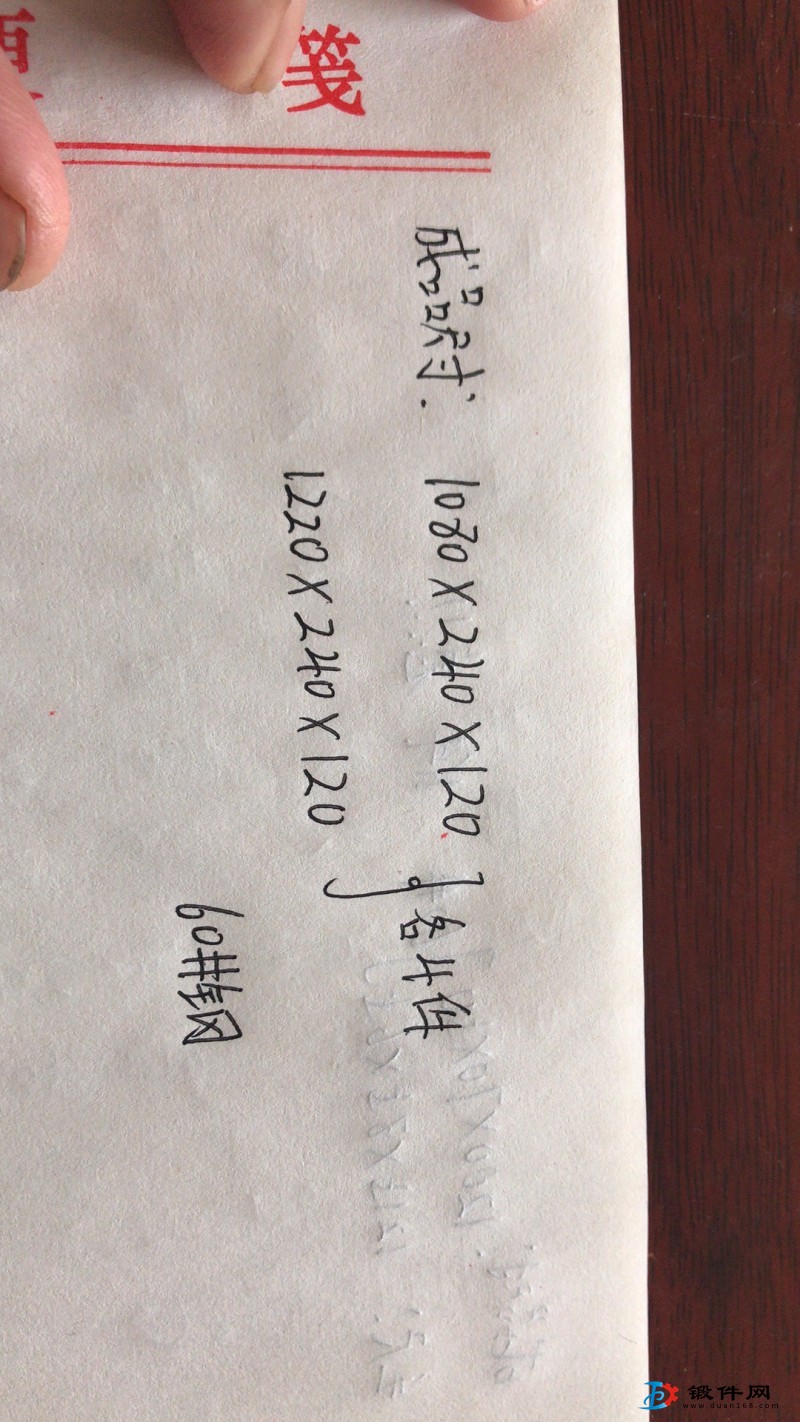 笺
成品尺寸: 1080×240×120
1220×240×120
各4件
60#钢
锻件网
www.duan168.com